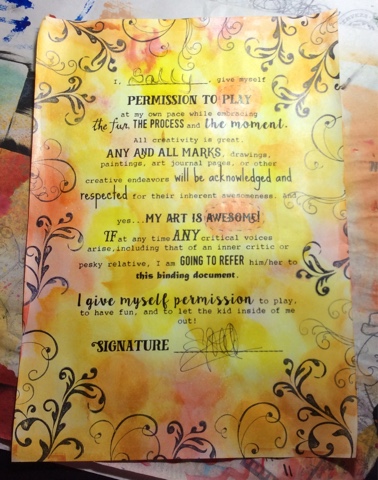 I, Sally, give myself
PERMISSION TO PLAY
at my own pace while embracing
the fun, THE PROCESS and the moment.
All creativity is great.
ANY AND ALL MARKS, drawings,
paintings, art journal pages, or other
creative endeavors will be acknowledged and
respected for their inherent awesomeness. And
yes...MY ART IS AWESOME!
IF at any time ANY critical voices
arise, including that of an inner critic or
pesky relative, I am GOING TO REFER him/her to
this binding document.
I give myself permission to play,
to have fun, and to let the kid inside of me
out!
SIGNATURE